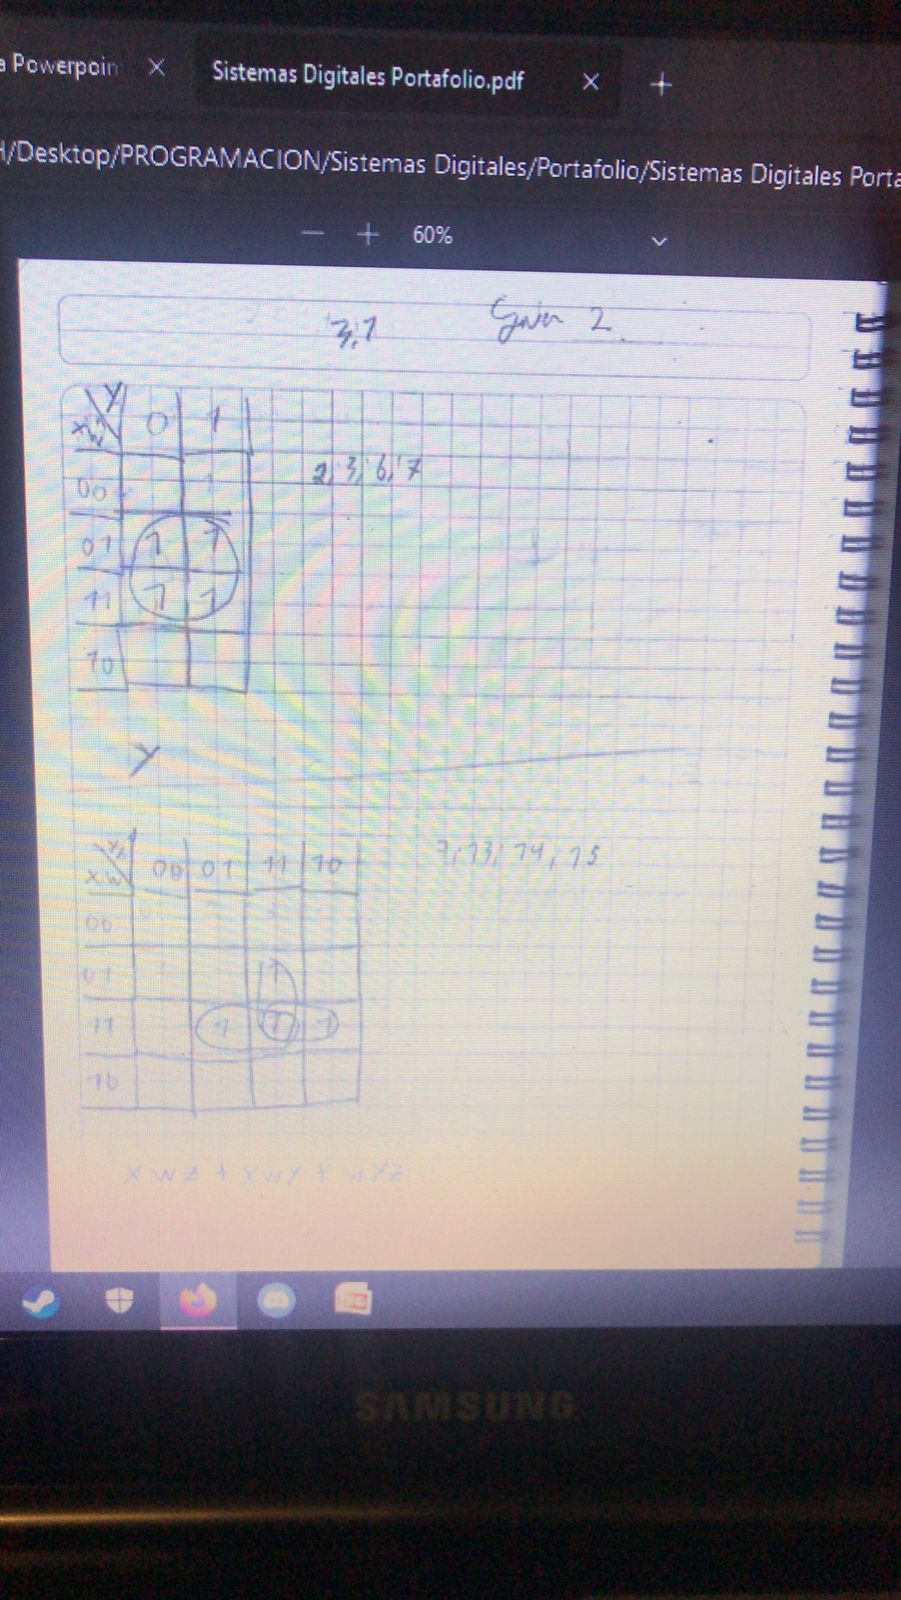 Sistemas Digitales Portafolio.pdf
/Desktop/PROGRAMACION/Sistemas Digitales/Portafolio/Sistemas Digitales Porta
60%
3,1
2
Y
0 1
00
01 1 1
11 1 1
10
2, 3, 6, 7
Y
00 01 11 10
7, 13, 14, 15
00
01 1
11 1 1 1
10
XWZ + XWY + WYZ
SAMSUNG